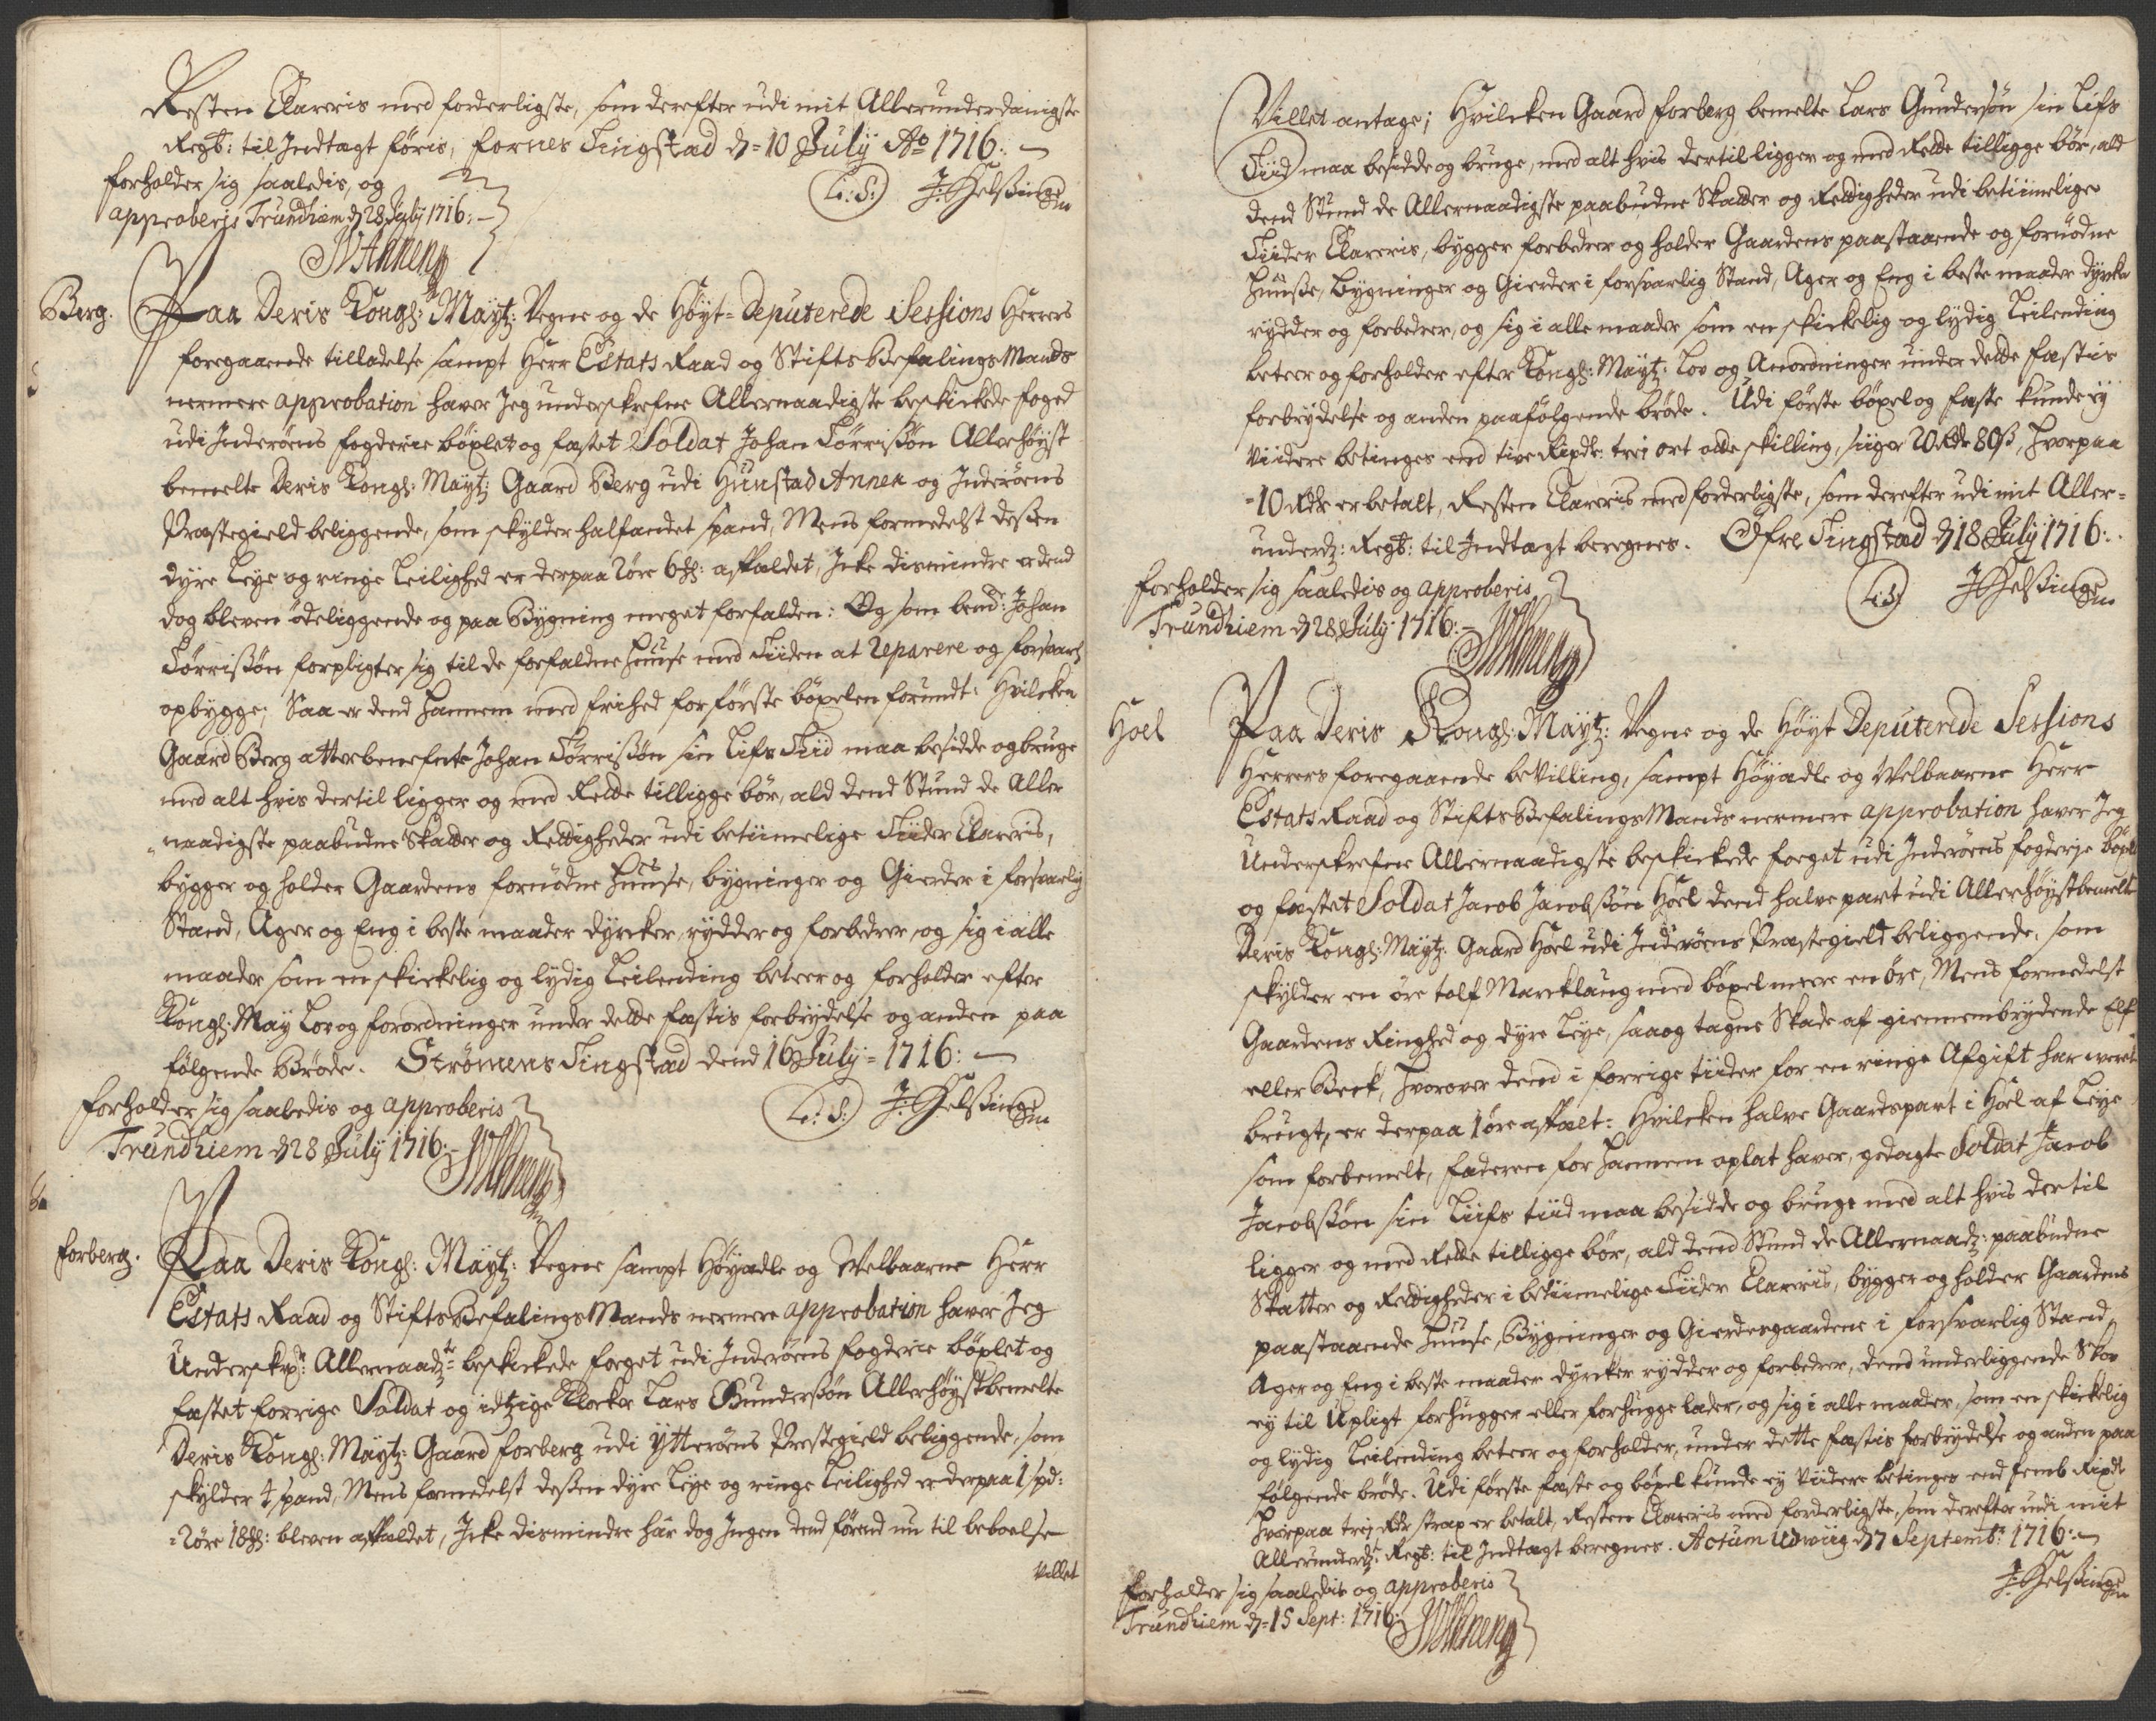 Resten Clareris med forderligste, som derefter udi mit Allerunderdanigste
Regb: til Indtægt føris, Fornes Tingstad d= 10 July Ao 1716:
forholder sig saaledis, og
approberis Trundhiem d 28 July 1716:
L:S:
Berg.
Paa Deris Kongl: Mayt: Vegne og de Høyt= Deputerede Sessions Herrers
foregaaende tilladelse sampt Herr Estats Raad og Stifts Befalings Mands
nermere approbation haver Jeg underskrefne Allernaadigste beskickede foged
udi Inderøens fogderie böxlet og fæstet Soldat Johan Törrisßön Allerhöyst
bemelte Deris Kongl: Mayt: Gaard Berg udi Hunstad Annex og Inderøens
Præstegield beliggende, som skylder halfandet spand, Mens formedelst deßen
dyre Leye og ringe Leilighed er derpaa 2øre 6 : affældet, Icke dismindre er dend
dog bleven ødeliggende og paa Bygning meget forfalden: Og som bemd: Johan
Törrisßön forpligter sig til de forfaldne Huuse med Tiiden at Reparere og forsvarl:
opbygge, Saa er dend hannem med frihed for første böxelen forundt: Hvilcken
Gaard Berg atterbenefnte Johan Törrisßön sin Lifs Tiid maa besidde og bruge
med alt hvis dertil ligger og med Rette tilligge bør, ald dend Stund de Aller
naadigste paabudne Skatter og Rettigheder udi betiimelige Tiider Clareris,
bygger og holder Gaardens fornødne Huuse, bygninger og Gierder i forsvarlig
Stand, Ager og Eng i beste maader dyrcker, rydder og forbedrer, og sig i alle
maader som en skickelig og lydig Leilending beteer og forholder efter
Kongl: May Lov og forordninger under dette fæstis forbrydelse og anden paa
følgende Brøde. Strömens Tingstad dend 16 July= 1716:
forholder sig saaledis og approberis
Trundhiem d 28 July 1716:
L:S:
forberg.
Paa Deris Kongl: Mayt: Vegne sampt Höyædle og Velbaarne Herr
Estats Raad og Stifts Befalings Mands nermere approbation haver Jeg
Underskr: Allernaad: beskickede foeget udi Inderøens fogderie böxlet og
fæstet forrige Soldat og idtzige Klocker Lars Gundersßön Allerhöystbemelte
Deris Kongl: Mayt: Gaard forberg udi Ytterøens Præstegield beliggende, som
skylder 4 spand, Mens formedelst deßen dyre Leye og ringe Leilighed er derpaa 1 spd:
2øre 18 : bleven affældet, Icke dismindre har dog Ingen dend førend nu til beboelse
villet
Villet antage; Hvilcken Gaard forberg bemelte Lars Gundersön sin Lifs
Tiid maa besidde og bruge, med alt hvis dertil ligger og med Rette tilligge bør, ald
dend Stund de Allernaadigste paabudne Skatter og Rettigheder udi betiimelige
Tiider Clareris, bygger forbedrer og holder Gaardens paastaaende og fornødne
Huuße, bygninger og Gierder i forsvarlig Stand, Ager og Eng i beste maader dyrcker
rydder og forbedrer, og sig i alle maader som en skickelig og lydig Leilending
beteer og forholder efter Kongl: Mayt: Lov og Anordninger under dette fæstis
forbrydelse og anden paafølgende brøde. Udi første böxel og fæste kunde ey
viidere betinges end tive Rixdr: trei ort otte skilling, siiger 20 Rdr 80 ß, hvorpaa
10 Rdr er betalt, Resten Clareris med forderligste, som derefter udi mit Aller=
underd: Regb: til Indtægt beregnes. Øfre Tingstad d 18 July 1716:
forholder sig saaledis og approberis
Trundhiem d 28 July 1716:
L:S:
Hoel
Paa Deris Kongl: Mayt: Vegne og de Höyt Deputerede Sessions
Herrers foregaaende bevilling, sampt Höyædle og Velbaarne Herr
Estats Raad og Stifts Befalings Mands nermere approbation haver Jeg
Underskrefne Allernaadigste beskickede foeget udi Inderøens fogderje böxlet
og fæstet Soldat Jacob Jacobsßön Hoel dend halve part udi Allerhöystbemelte
Deris Kongl: Mayt: Gaard Hoel udi Inderøens Præstegield beliggende, som
skylder en øre tolf Marcklaug med böxel meere en øre, Mens formedelst
Gaardens Ringhed og dyre Leye, saaog tagne Skade af giennembrydende Elf
eller Beck, hvorover dend i forrige tiider for en ringe Afgift har weret
brugt, er derpaa 1 øre affælt: Hvilcken halve Gaardspart i Hoel af Leye
som forbemelt, faderen for hannem oplat haver, gedagte Soldat Jacob
Jacobsßön sin Liifs tiid maa besidde og bruge med alt hvis dertil
ligger og med Rette tilligge bør, ald dend Stund de Allernaad: paabudne
Skatter og Rettigheder i betiimelige Tiider Clareris, bygger og holder Gaardens
paastaaende Huuse, Bygninger og Gierdesgaardene i forsvarlig Stand,
Ager og Eng i beste maader dyrcker rydder og forbedrer, dend underliggende Skov
ey til Upligt forhugger eller forhugge lader, og sig i alle maader, som en skickelig
og lydig Leilending beteer og forholder, under dette fæstis forbrydelse og anden paa
følgende brøde. Udi første fæste og böxel kunde ey viidere betinges end femb Rixdr
hvorpaa trej Rdr strax er betalt, Resten Clareris med forderligste, som derefter udi mit
Allerunderd: Regb: til Indtægt beregnes. Actum Udwiig d 7 Septemb: 1716:
forholder sig saaledis og approberis
Trundhiem d= 15 Sept: 1716: